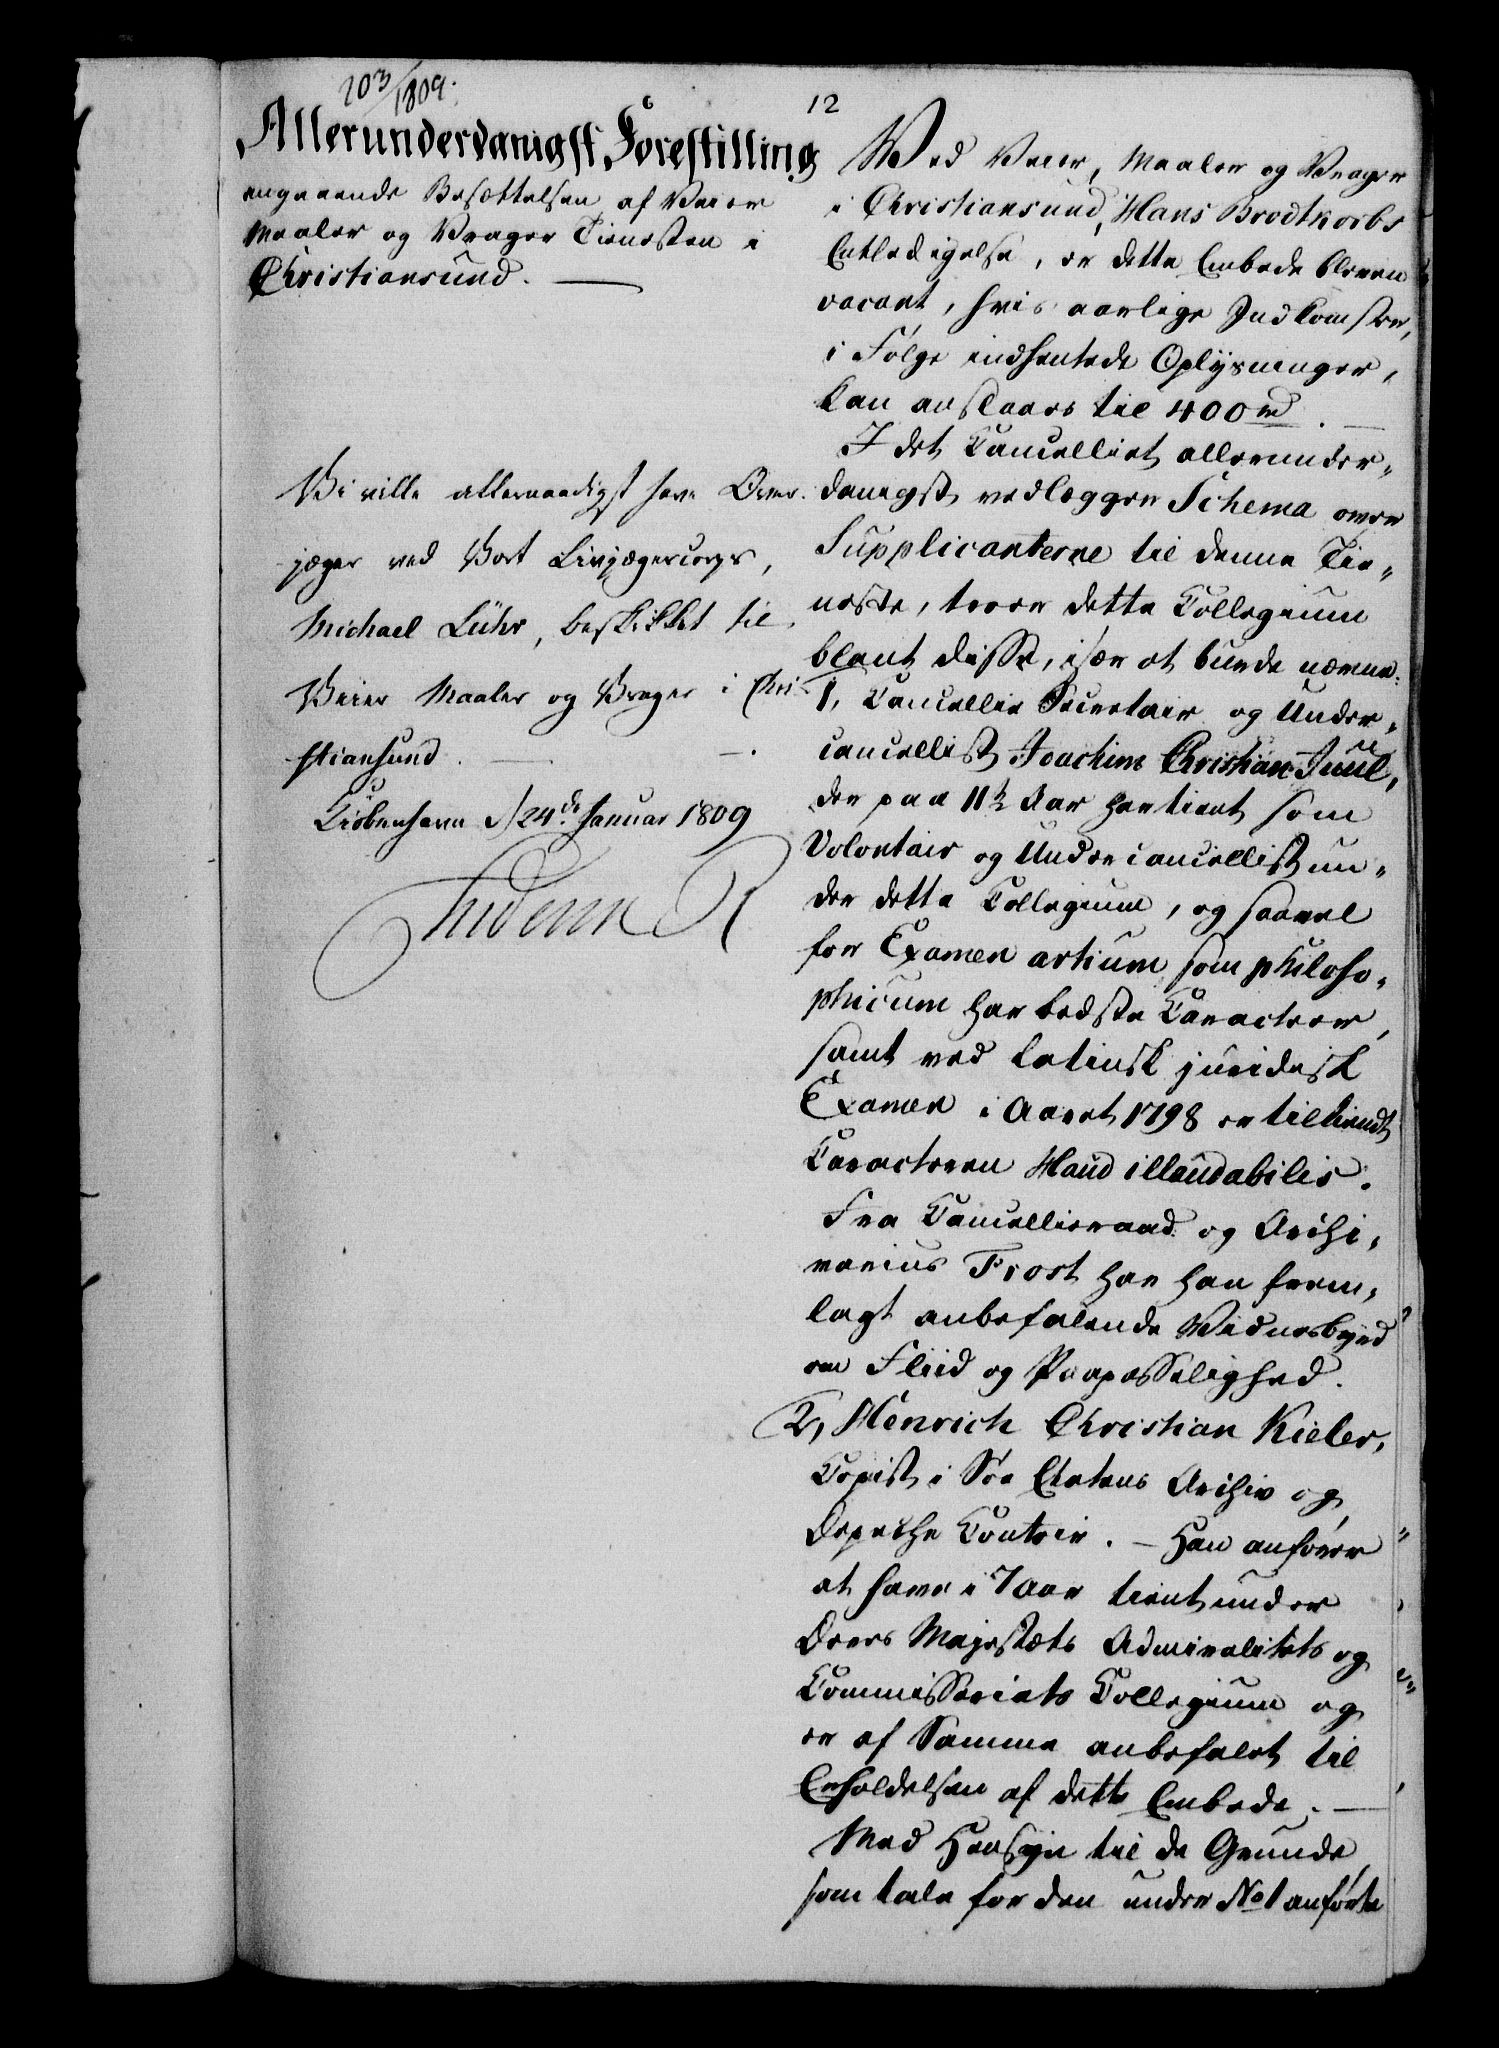 203/1809.
12
Allerunderdanigst Forestilling
angaaende Besættelsen af Veier
Maaler og Vrager Tienesten i
Christiansund. —
Vi ville allernaadigst have Over-
jæger ved Vort Livjægercorps,
Michael Lühr, beskikket til
Veier Maaler og Vrager i Chri-
stiansund. —
Kiøbenhavn d 24de Januar 1809
Friderich R
Ved Veier, Maaler og Vrager
i Christiansund, Hans Brodtkorbs
Entledigelse, er dette Embede bleven
vacant, hvis aarlige Indkomster,
i Følge indhentede Oplysninger,
kan anslaaes til 400 rd. —
I det Cancelliet allerunder-
danigst vedlægger Schema over
Supplicanterne til denne Tie-
neste, troer dette Collegium
blant disse, især at burde nævne:
1, Cancellie Secretair og Under-
cancellist Joachim Christian Juul,
der paa 11½ Aar har tient som
Volontair og Undercancellist un-
der dette Collegium, og saavel
for Examen artium som philoso-
phicum har bedste Caracteer,
samt ved latinsk juridisk
Examen i Aaret 1798 er tilkiendt
Caracteren Haud illaudabilis.
Fra Cancellieraad og Archi-
varius Frost har han frem-
lagt anbefalende Vidnesbyrd
om Fliid og Paapasselighed.
2, Henrich Christian Kieler,
Copist i Søe Etatens Archiv og
Depeche Contoir. — Han anfører
at have i 7 Aar tient under
Deres Majestæts Admiralitets og
Commissariats Collegium og
er af Samme anbefalet til
Erholdelsen af dette Embede. —
Med Hensyn til de Grunde
som tale for den under No 1 anførte